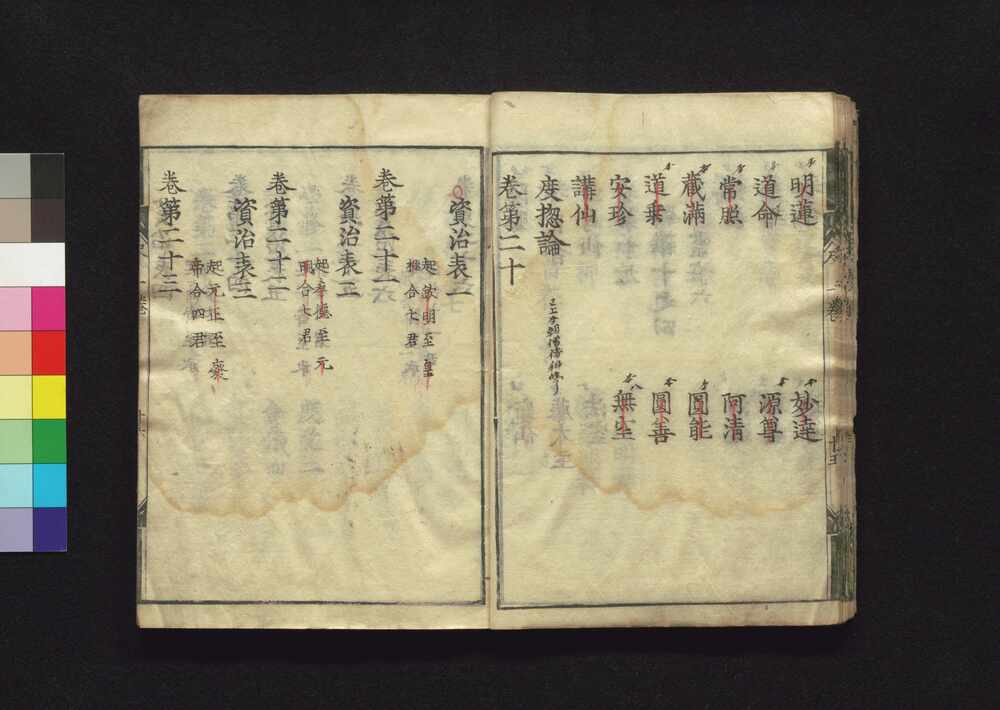 明蓮　妙達
道命　源尊
常照　阿清
藏滿　圓能
道乗　圓善
安珍　無空
講仙
度揔論
卷第二十
資治表二
起欽明至皇
極合七君
卷第二十一
資治表三
起孝德至元
明合七君
卷第二十二
資治表三
起元正至廢
帝合四君
卷第二十三